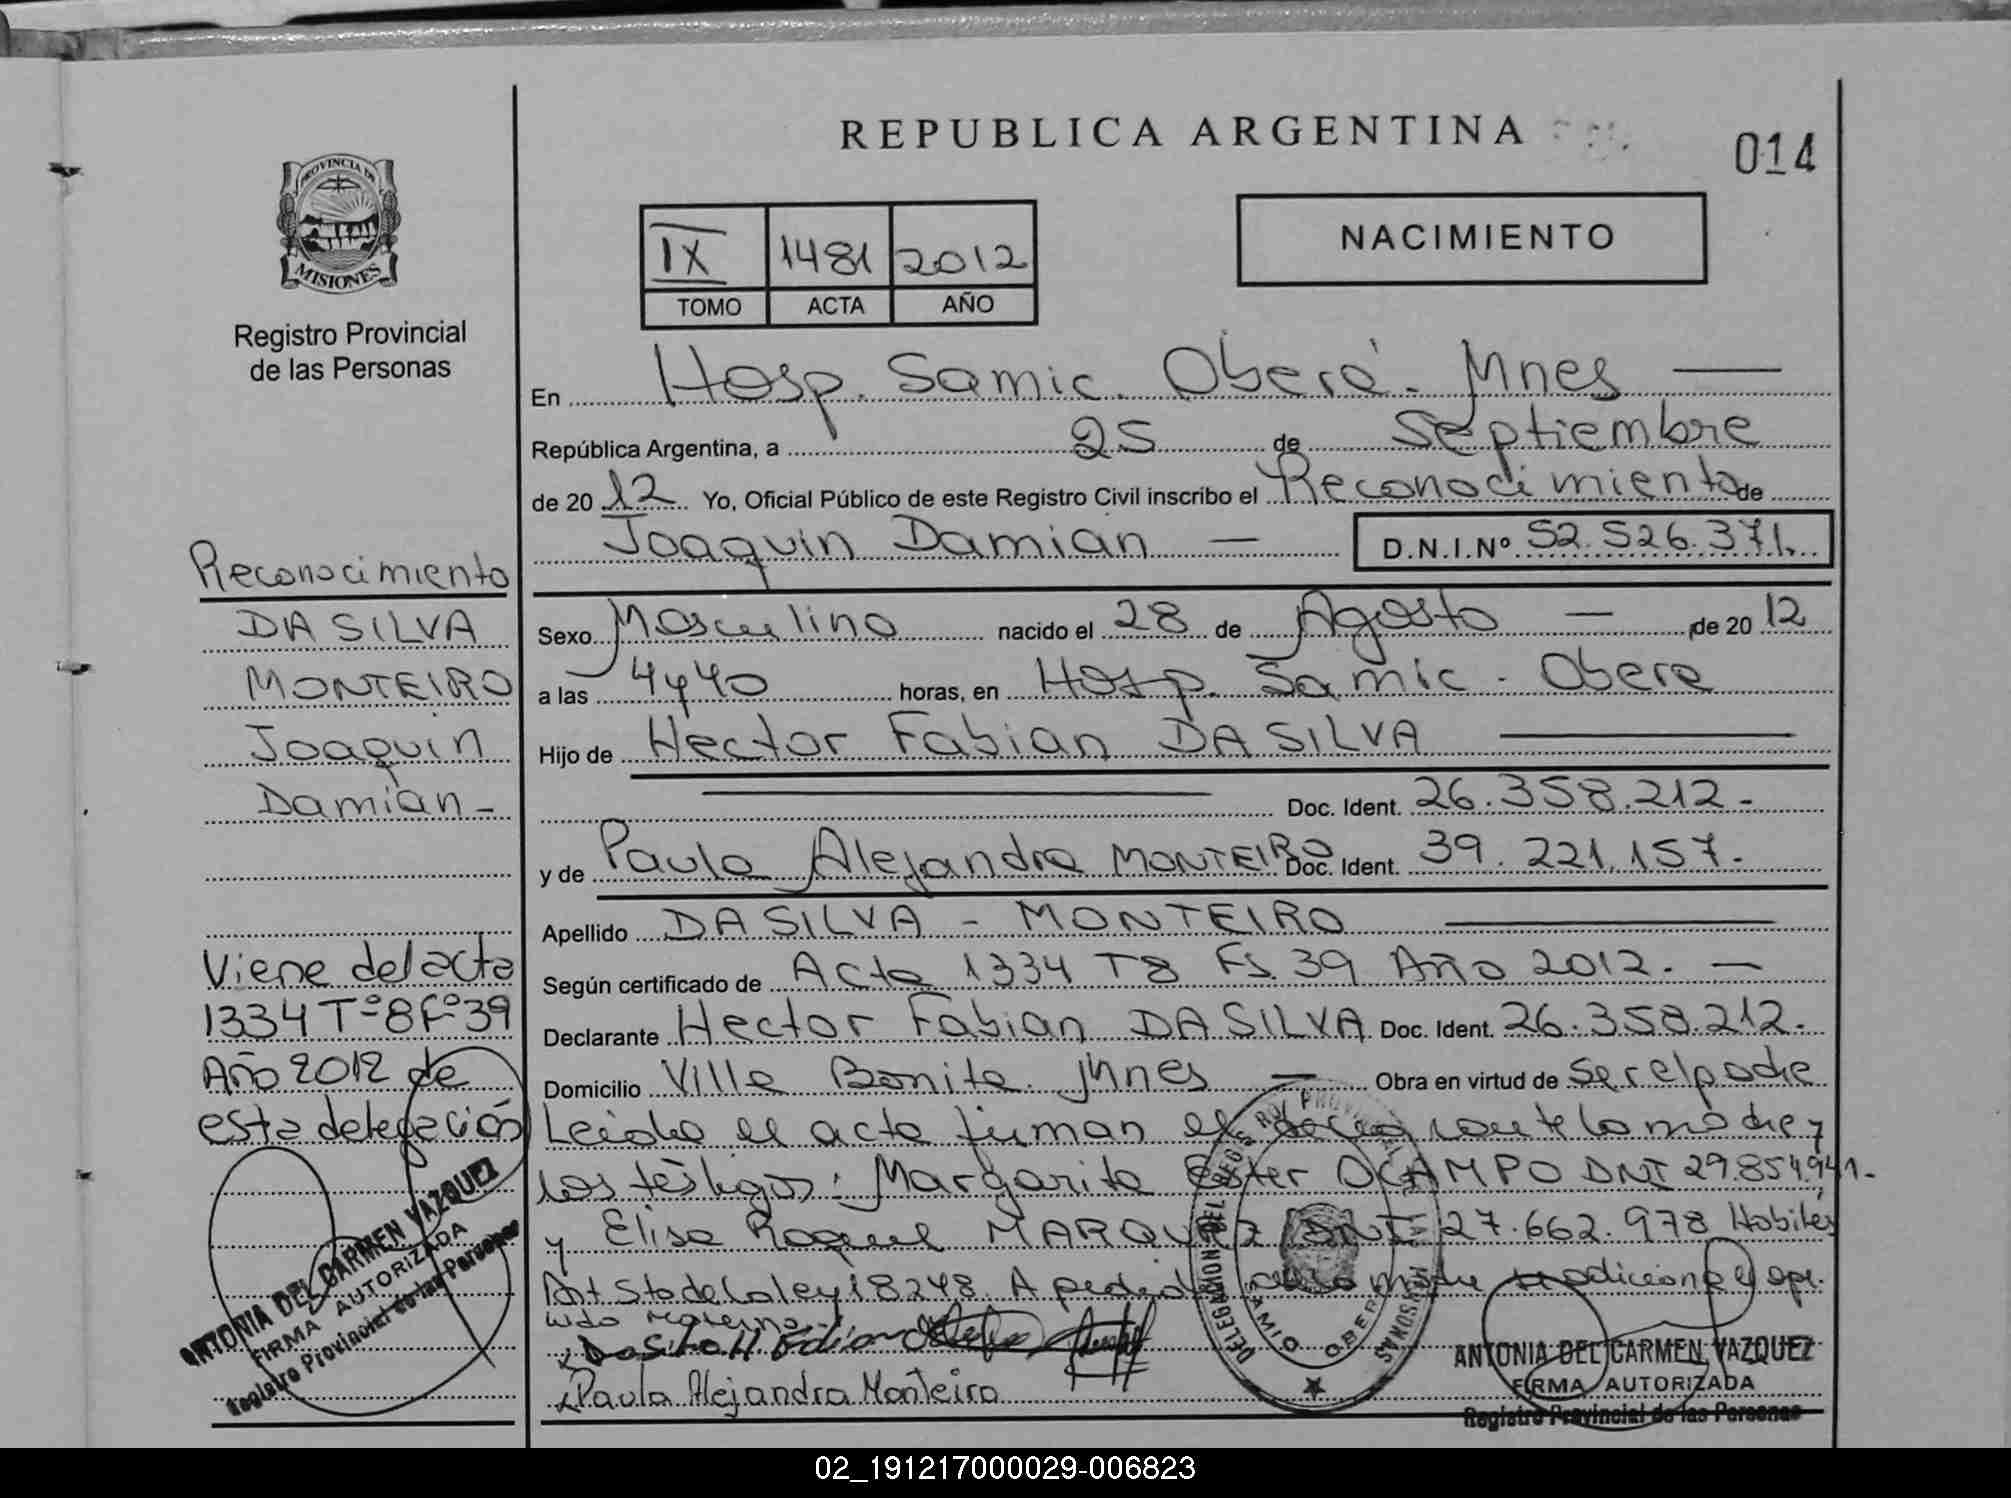 REPUBLICA ARGENTINA
014
PROVINCIA DE
MISIONES
Registro Provincial
de las Personas
IX 1481 2012
TOMO ACTA AÑO
NACIMIENTO
En Hosp. Samic. Oberá. Mnes
República Argentina, a 25 de Septiembre
de 20 12 Yo, Oficial Público de este Registro Civil inscribo el Reconocimiento de
Joaquin Damian — D.N.I.Nº 52.526.371.
Sexo Masculino nacido el 28 de Agosto — de 20 12
a las 4 y 40 horas, en Hosp. Samic. Obera
Hijo de Hector Fabian DA SILVA
Doc. Ident. 26.358.212.-
y de Paula Alejandra MONTEIRO Doc. Ident. 39.221.157.-
Apellido DA SILVA - MONTEIRO
Según certificado de Acta 1334 T8 Fs. 39 Año 2012. —
Declarante Hector Fabian DA SILVA Doc. Ident. 26.358.212.-
Domicilio Villa Bonita. Mnes — Obra en virtud de ser el padre
Leida el acta firman el la madre y
los testigos: Margarita Ester OCAMPO DNI 29.854.941.-
y Elisa Raquel MARQUEZ DNI 27.662.978 Habiles
Art 5to de la ley 18248. A pedido de la madre se adiciona el ape-
llido materno.
Da Silva H. Fabian
Paula Alejandra Monteiro
ANTONIA DEL CARMEN VAZQUEZ
FIRMA AUTORIZADA
Registro Provincial de las Personas
Reconocimiento
DA SILVA
MONTEIRO
Joaquin
Damian-
Viene del acta
1334 Tº 8 Fº 39
Año 2012 de
esta delegación
ANTONIA DEL CARMEN VAZQUEZ
FIRMA AUTORIZADA
Registro Provincial de las Personas
02_191217000029-006823